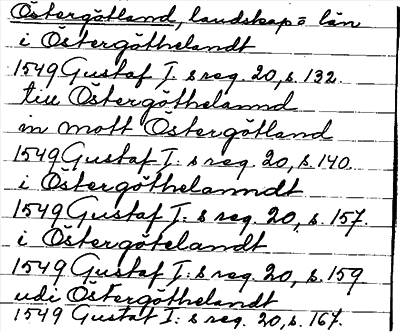 Östergötland, landskap = län
i Östergöthelandt
1549 Gustaf I: s reg. 20, s. 132.
till Östergöthelannd
in mott Östergötland
1549 Gustaf I: s reg. 20, s. 140.
i Östergöthelanndt
1549 Gustaf I: s reg. 20, s. 157.
i Östergötelandt
1549 Gustaf I: s reg. 20, s. 159
udi Östergöthelandt
1549 Gustaf I: s reg. 20, s. 167.